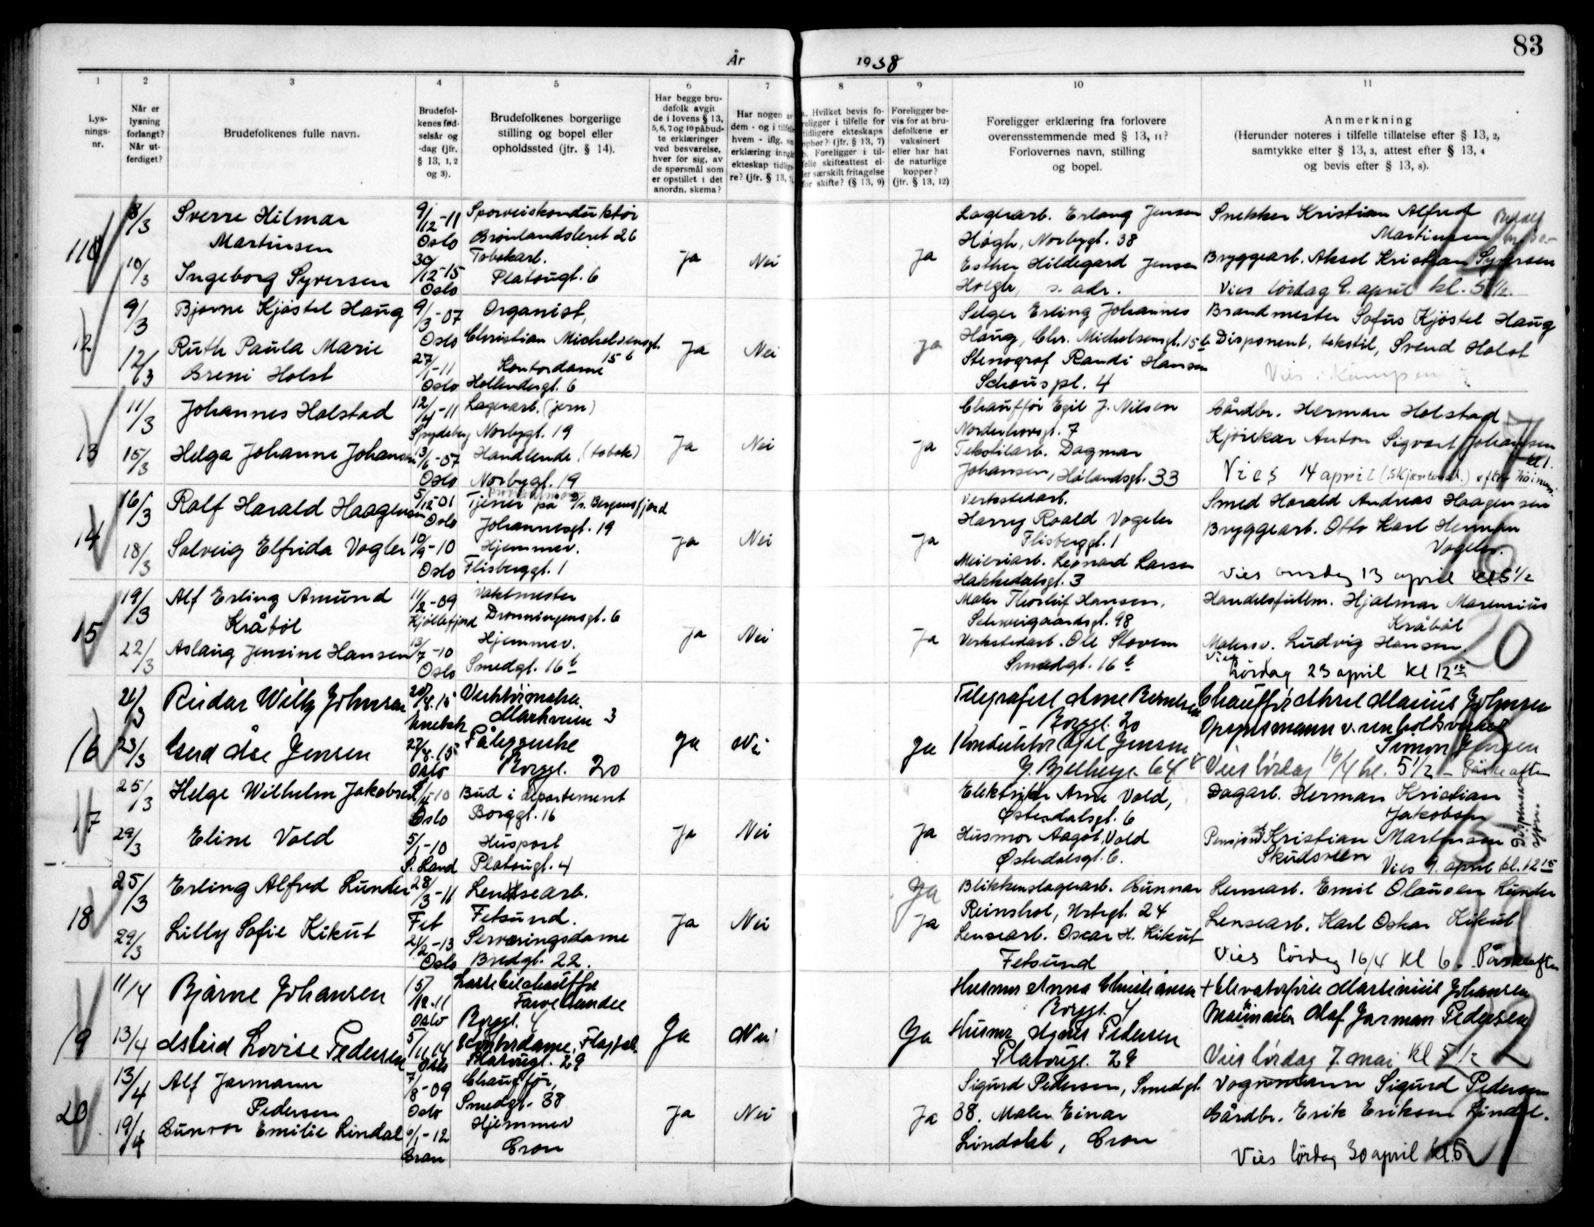 83
År 1938
1 2 3 4 5 6 7 8 9 10 11
Lys-
nings-
nr.
Når er
lysning
forlangt?
Når ut-
ferdiget?
Brudefolkenes fulle navn.
Brudefol-
kenes fød-
selsår og
-dag (jfr.
§ 13, 1, 2
og 3).
Brudefolkenes borgerlige
stilling og bopel eller
opholdssted (jfr. § 14).
Har begge bru-
defolk avgit
de i lovens § 13,
5, 6, 7 og 10 påbud-
te erklæringer
ved besvarelse,
hver for sig, av
de spørsmål som
er opstillet i det
anordn. skema?
Har nogen av
dem - og i tilfelle
hvem - iflg.
erklæring inngått
ekteskap tidlige-
re? (jfr. § 13,
a. Hvilket bevis fo-
religger i tilfelle
tidligere ekteskaps
ophør? (jfr. § 13, 7)
b. Foreligger i til-
felle skifteattest el-
ler særskilt fritagelse
for skifte? (§ 13, 9)
Foreligger be-
vis for at bru-
defolkene er
vaksinert
eller har hat
de naturlige
kopper?
(jfr. § 13, 12)
Foreligger erklæring fra forlovere
overensstemmende med § 13, 11?
Forlovernes navn, stilling
og bopel.
Anmerkning
(Herunder noteres i tilfelle tillatelse efter § 13, 2,
samtykke efter § 13, 3, attest efter § 13, 4
og bevis efter § 13, 8).
8/3 Sverre Hilmar 9/12-11 Sporveiskonduktør Lagerarb. Erling Jensen Snekker Kristian Alfred
Martinsen Oslo Brønlandsleret 26 Høgh, Norbygt. 38 Martinsen
110 30/12-15 Tobakarb. Ja Nei Ja Esther Hildegard Jensen Bryggearb. Aksel Kristian Syversen
10/3 Ingeborg Syversen Oslo Platougt. 6 Høegh, s. adr. Vies lørdag 9. april kl. 5½.
9/3 Bjarne Kjøstel Haug 9/3-07 Organist, Selger Erling Johannes Brandmester Sofus Kjøstel Haug
12 Oslo Christian Michelsensgt. 15 b Haug, Chr. Michelsensgt. 15 b Disponent, tekstil, Svend Holst
12/3 Ruth Paula Marie 27/1-11 Kontordame Ja Nei Ja Stenograf Randi Hansen
Greni Holst Oslo Hollendergt. 6 Schouspl. 4 Vies i Kampen
11/3 Johannes Holstad 12/4-11 Lagerarb. (jern) Chauffør Egil J. Nilsen Gårdbr. Herman Holstad
Spydeberg Norbygt. 19 Norderhovsgt. 7 Kjørekar Anton Sigvart Johansen
13 15/3 Helga Johanne Johansen 13/6-07 Handlende, (tobak) Ja Nei Ja Tekstilarb. Dagmar
Oslo Norbygt. 19 Johansen, Hålandsgt. 33 Vies 14 april (Skjærtorsd.) efter høimessen kl 1.
16/3 Ralf Harald Haagensen 5/12-01 Tjener på D/S. Bergensfjord Verkstedarb. Smed Harald Andreas Haagensen
Oslo Johannesgt. 19 Harry Roald Vogeler Bryggearb. Otto Karl Herman
14 18/3 Solveig Elfrida Vogler 10/9-10 Hjemmev. Ja Nei Ja Flisberggt. 1 Vogeler.
Oslo Flisberggt. 1 Meieriarb. Leonard Larsen
Hakkedalsgt. 3 Vies onsdag 13 april kl 5½ 16
19/3 Alf Erling Amund 11/2-09 Vaktmester Maler Thorleif Hansen, Handelsfullm. Hjalmar Marenius
Kråbøl Kjøllefjord Dronningensgt. 6 Schweigaardsgt. 98 Kråbøl
15 22/3 Aslaug Jensine Hansen 13/7-10 Hjemmev. Ja Nei Ja Verkstedarb. Ole Stoven Malersv. Ludvig Hansen 20
Oslo Smedgt. 16 b Smedgt. 16 b Vies Lørdag 23 april kl 12 15
21/3 Reidar Willy Johnsen 20/8.15 Verktøimaker Telegrafist Arne Berntsen Chauffør Aksel Marius Johnsen
Markveien 3 Borggt. 20 Opsynsmann v. renholdsverket
16 23/3 Gerd Åse Jensen 27/8.15 Påleggerske Ja Nei Ja Konduktør Kjell Jensen Simon Jensen
Oslo Borggt. 20 G. Bjelkesgt. 64 Vies lørdag 16/4 kl. 5½ – Påskeaften
25/3 Helge Wilhelm Jakobsen 1/4-10 Bud i departement Elektriker Arne Vold, Dagarb. Herman Kristian
Oslo Borggt. 16 Østerdalsgt. 6 Jakobsen
17 29/3 Eline Vold 5/1-10 Huspost Ja Nei Ja Husmor Aagot Vold Pensjonist Kristian Martinsen
S. Land Platougt. 4 Østerdalsgt. 6. Skudsveen Vies 9. april kl. 12 15
25/3 Erling Alfred Lunder 28/3-11 Lensearb. Ja Blikkenslagerarb. Gunnar Lensearb. Emil Olausen Lunder
18 Fet Fetsund. Ja Nei Ja Reinshol, Urtegt. 24 Lensearb. Karl Oskar Kikut
29/3 Lilly Sofie Kikut 21/2-13 Serveringsdame Lensearb. Oscar H. Kikut
Oslo Bredgt. 22. Fetsund Vies lørdag 16/4 kl 6. Påskeaften
11/4 Bjarne Johansen 15/12-11 Lastebilchauffør Husmor Anna Christiansen + Elevatorfører Martinius Johansen
Oslo Borggt. 4 Borggt. 4 Olaf Jarman Pedersen
19 13/4 Astrid Lovise Pedersen 5/11.14 Kontordame. Ja Nei Ja Husmor Agnes Pedersen
Oslo Platougt. 29 Platougt. 29 Vies lørdag 7. mai kl 5½ 22
13/4 Alf Jarmann 7/8-09 Chauffør, Sigurd Pedersen, Smedgt. Vognmann Sigurd Pedersen
Pedersen Oslo Smedgt. 38 38. Maler Einar Gårdbr. Erik Eriksen Lindal.
20 19/4 Gunvor Emilie Lindal 6/1-12 Hjemmev Ja Nei Ja Lindahl, Gran
Gran Gran Vies lørdag 30 april kl 5 21